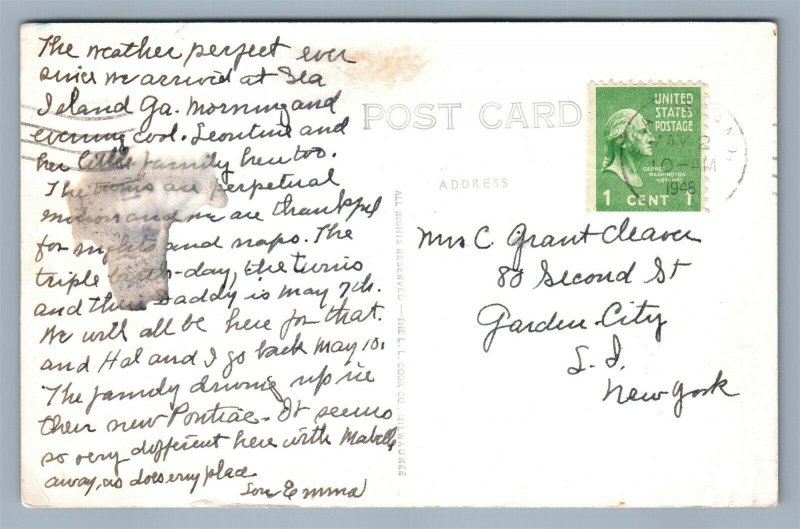 The weather perfect ever
since we arrived at Sea
Island Ga. Morning and
evening cool. Leontine and
her little family here too.
The twins are perpetual
motion and we are thankful
for night and naps. The
triple birth-day, the twins
and their Daddy is May 7th.
We will all be here for that.
and Hal and I go back May 10.
The family driving up in
their new Pontiac. It seems
so very different here with Mabelle
away, as does my place
Lov Emma
POST CARD
ADDRESS
ALL RIGHTS RESERVED — THE L. L. COOK CO., MILWAUKEE
UNITED
STATES
POSTAGE
GEORGE
WASHINGTON
1789-1797
1 CENT 1
MAY 2
10-AM
1948
Mrs C. Grant Cleaver
80 Second St
Garden-City
L. I.
New York